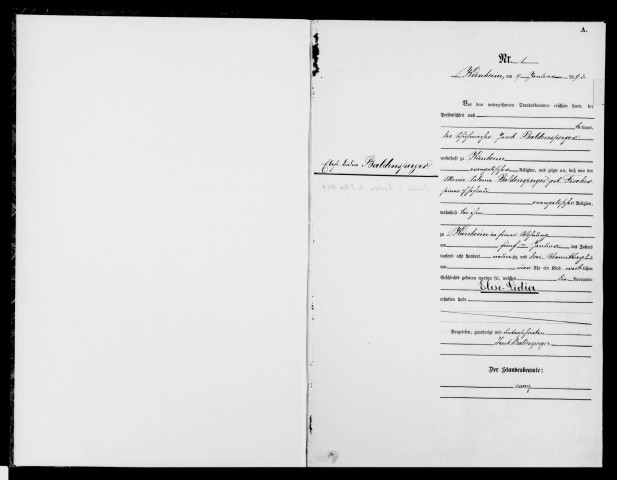 A.
Nr. 1
Künheim, am 9 Januar 1893
Vor dem unterzeichneten Standesbeamten erschien heute, der
Persönlichkeit nach
kannt,
der Schuhmacher Jacob Baldensperger
wohnhaft zu Künheim
evangelischer Religion, und zeigte an, daß von der
Maria Salomea Baldensperger geb. Fischer
seiner Ehefrau
evangelischer Religion,
wohnhaft bei ihm
zu Künheim in seiner Wohnung
am fünften Januar des Jahres
tausend acht hundert neunzig und drei Vormittags
um vier Uhr ein Kind weiblichen
Geschlechts geboren worden sei, welches die Vornamen
Elise Lidia
erhalten habe
Vorgelesen, genehmigt und unterschrieben
Jacob Baldensperger
Der Standesbeamte:
Elise Lidia Baldensperger